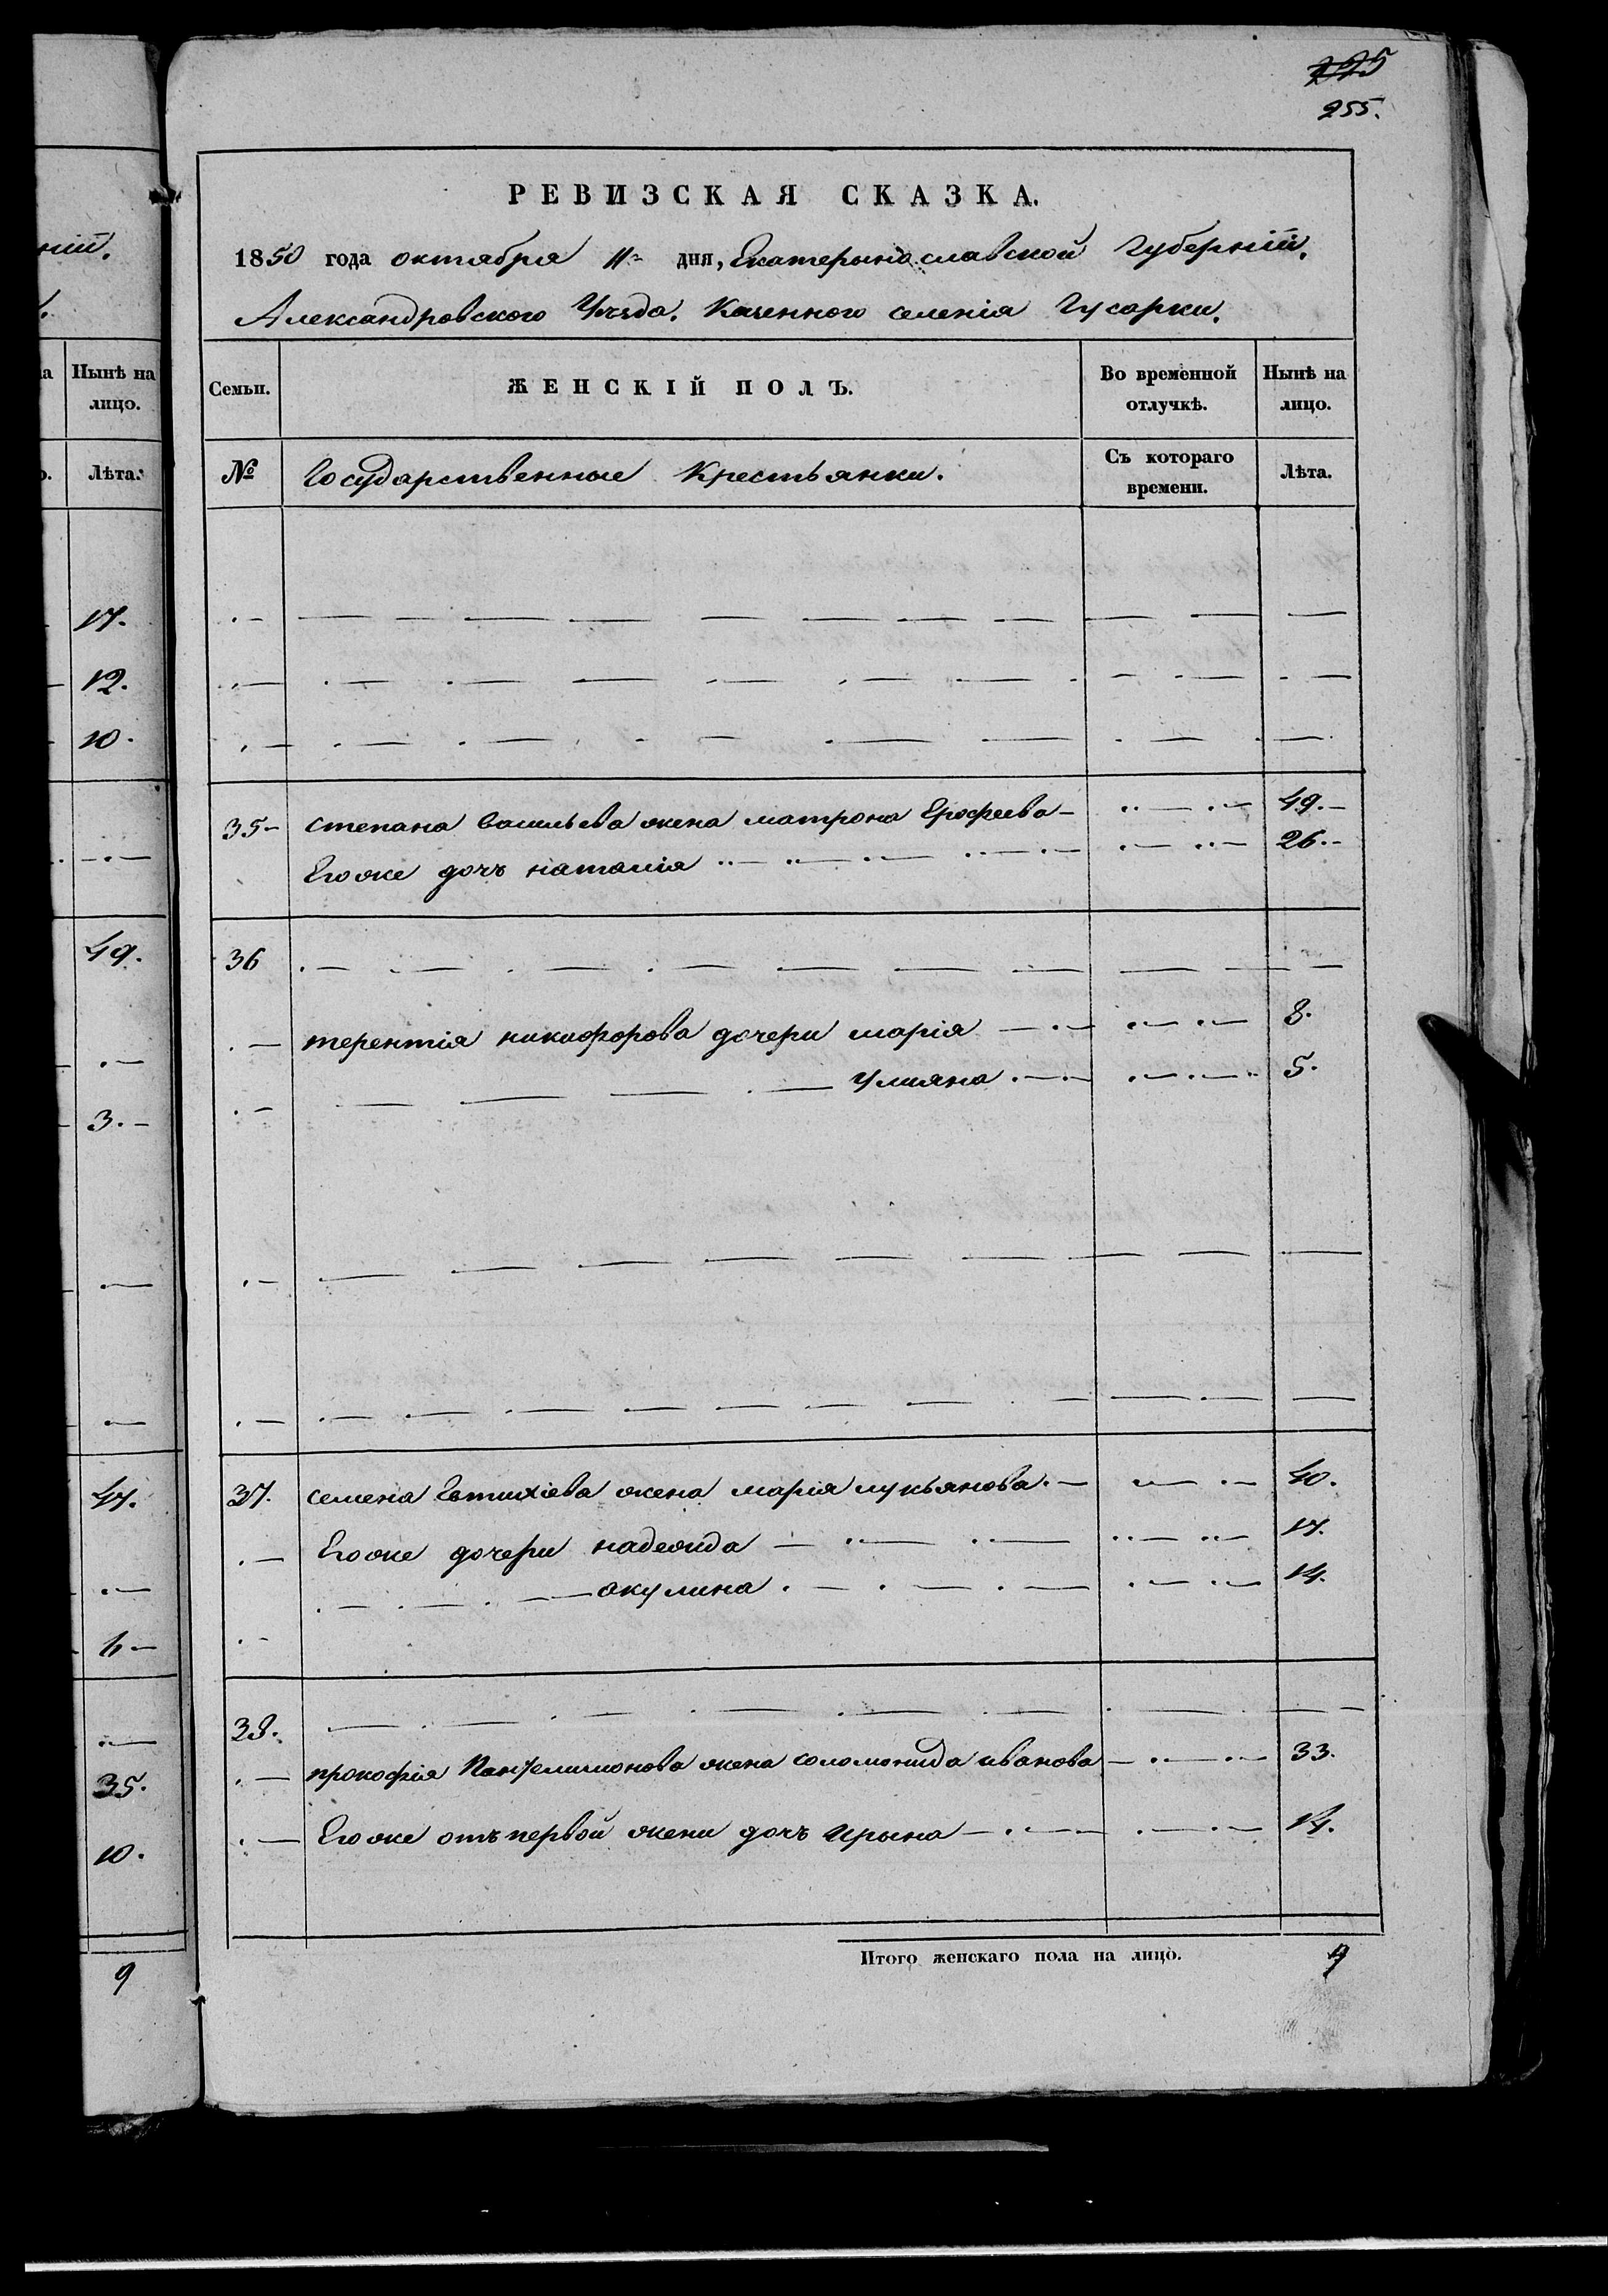 225
255.
ній.
РЕВИЗСКАЯ СКАЗКА.
1850 года октября 11 дня, Екатерынославской Губерніи.
Александровского Уезда. Казенного селенія Гусарки.
Нынѣ на лицо.
Семьи.
ЖЕНСКІЙ ПОЛЪ.
Во временной отлучкѣ.
Нынѣ на лицо.
Лѣта.
№
Государственные Крестьянки.
Съ котораго времени.
Лѣта.
17.
12.
10.
35 степана васильева жена матрона Ерофеева 49.
Егоже дочъ наталія 26.
49.
36
терентія никифорова дочери марія 8.
Улияна 5.
3.
47.
37. семена Евтихіева жена марія лукьянова. 40.
Егоже дочери надежда 17.
акулина. 14.
6
38.
35.
прокофія Пантелимонова жена соломонида иванова 33.
10.
Егоже отъ первой жени дочъ Ирына 14.
9
Итого женскаго пола на лицо. 9